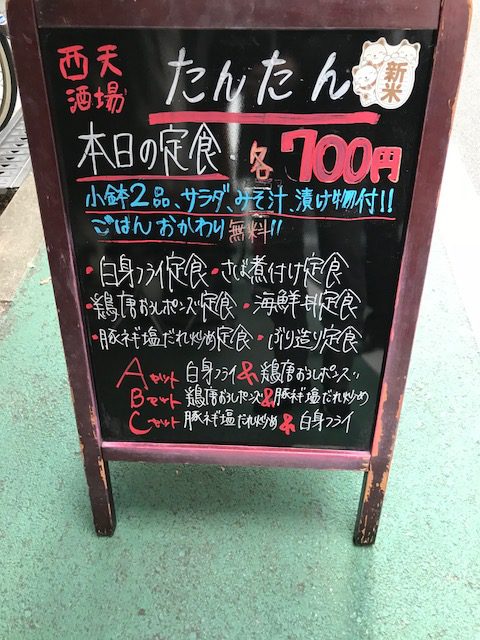 西天酒場 たんたん
新米
本日の定食 各700円
小鉢2品、サラダ、みそ汁、漬け物付!!
ごはんおかわり無料!!
・白身フライ定食 ・さば煮付け定食
・鶏唐おろしポンズ定食 ・海鮮丼定食
・豚ネギ塩だれ炒め定食 ・ぶり造り定食
Aセット 白身フライ&鶏唐おろしポンズ
Bセット 鶏唐おろしポンズ&豚ネギ塩だれ炒め
Cセット 豚ネギ塩だれ炒め&白身フライ